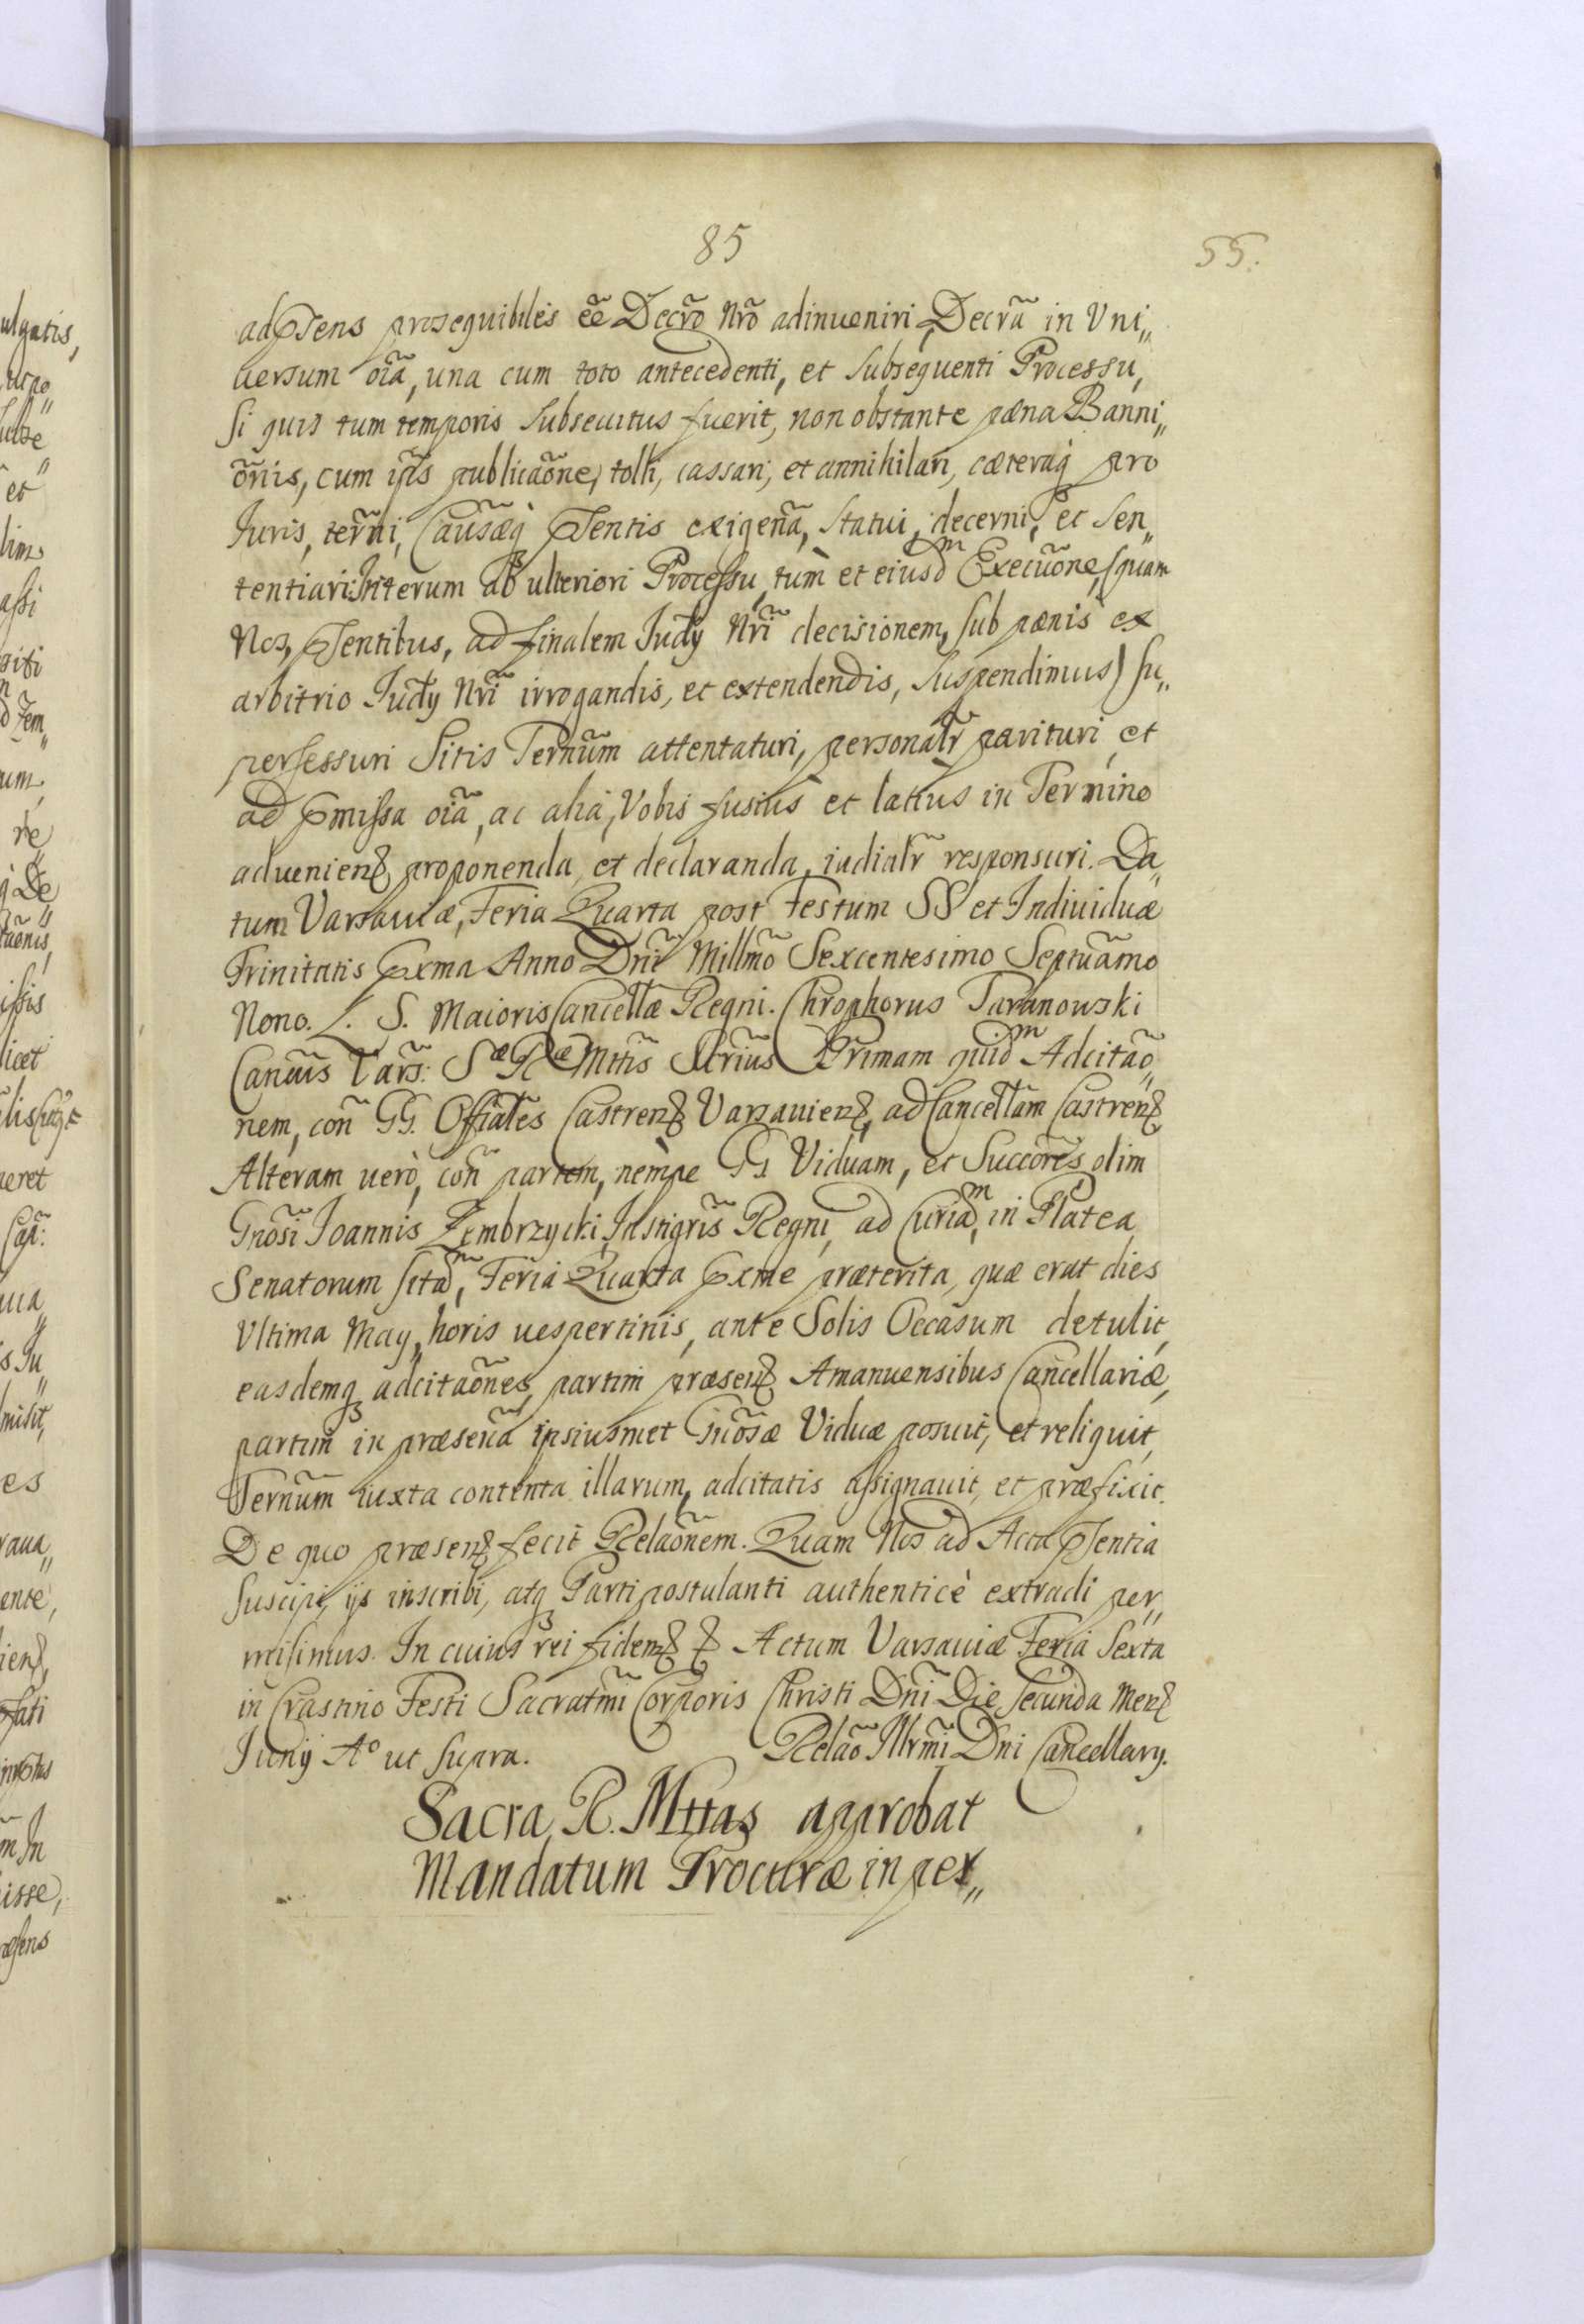 85
55.
adpñtens prosequibiles eẽ Decro Nro adinueniri, Decra in Uni„
uersum oia, una cum toto antecedenti, et subsequenti Processu,
si quis tum temporis subsecutus fuerit, non obstante pœna Banni„
onis, cum ipis publicaone, tolli, cassari, et annihilari, cæteraq pro
Iuris, terni, Causæq pntentis exigena, statui, decerni, et sen„
tentiari. Interum ab ulteriori Processu, tum et eiusdm Execuone, (quam
Nos, pntentibus, ad finalem Iudy Nri decisionem, sub pœnis ex
arbitrio Iudy Nri irrogandis, et extendendis, suspendimus) su„
persessuri sitis Ternum attentaturi, personalr parituri, et
ad pmissa oia, ac alia, Vobis fusius et latius in Termino
aduenienz proponenda, et declaranda, iudialr responsuri. Da„
tum Varsauiæ, Feria Quarta post Festum SS et Indiuiduæ
Trinitatis pxma Anno Dni Millmo Sexcentesimo Septuamo
Nono. L. S. Maioris Cancellæ Regni. Chrophorus Taranowski
Cancus Vars: Sæ Ræ Mttis Scrius Primam quidm Adcitao„
nem, con GG. Offiales Castrenz Varsauienz, ad Cancellam Castrenz
Alteram uerò, con partem, nempe GG. Viduam, et Succores olim
Gnosi Ioannis Zembrzycki, Instigris Regni, ad Curiam, in Platea
Senatorum sitam, Feria Quarta pxme præterita, quæ erat dies
Ultima May, horis uespertinis, ante Solis Occasum detulit,
easdemq adcitaones, partim præsenz Amanuensibus Cancellariæ,
partim in præsena ipsiusmet Gnosæ Viduæ posuit, et reliquit,
Ternum iuxta contenta illarum, adcitatis assignauit, et præfixit.
De quo præsenz fecit Relaonem. Quam Nos ad Acta pntentia
suscipi, ijs inscribi, atq Parti postulanti authenticè extradi per„
misimus. In cuius rei fidemz z Actum Varsauiæ Feria Sexta
in Crastino Festi Sacratmi Corporis Christi Dni Die secunda Menz
Iunij Ao ut supra. Relao Illrmi Dni Cancellary.
Sacra R. Mttas approbat
Mandatum Procuræ in per„